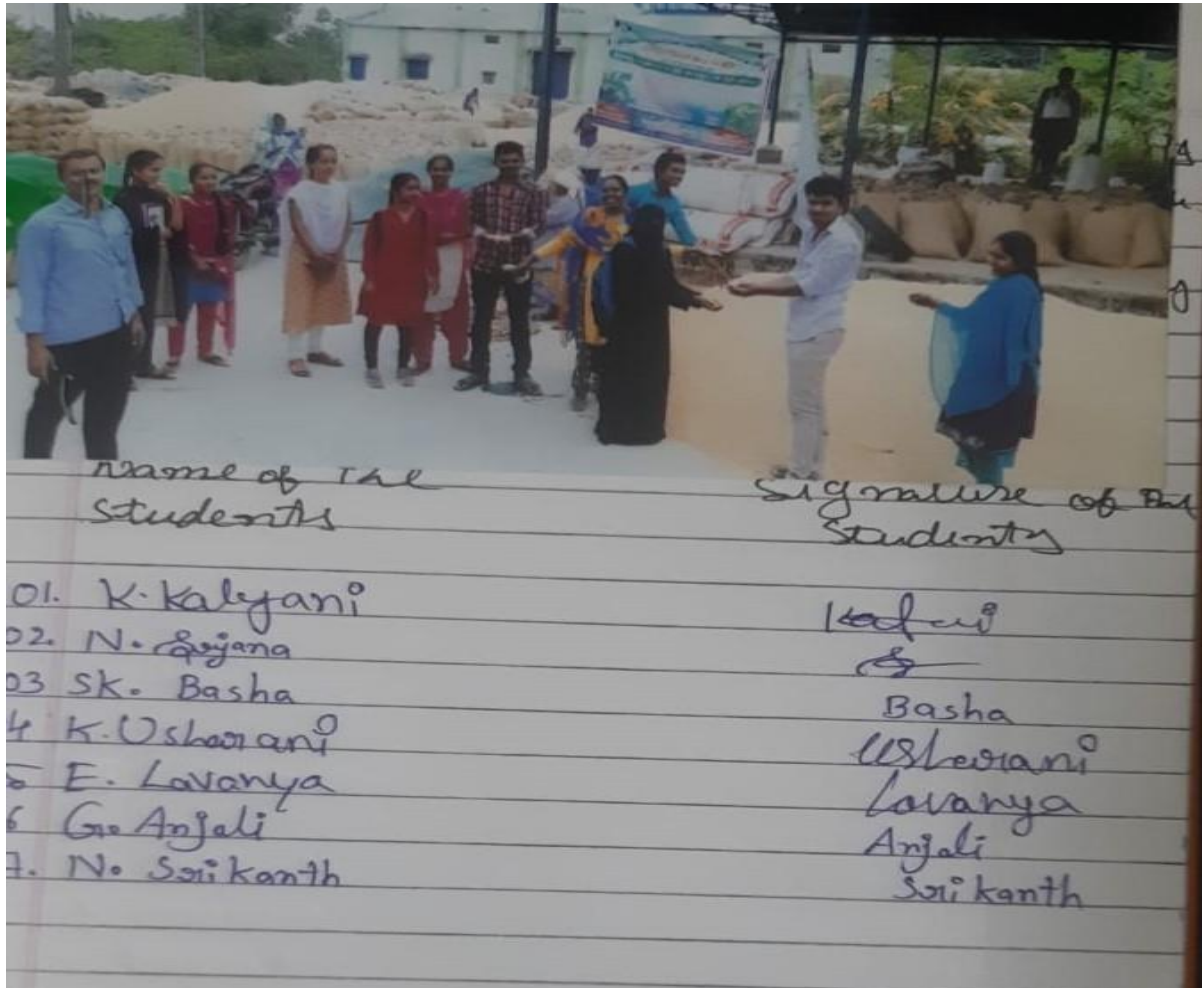 Name of The
Students
Signature of The
Students
01. K. Kalyani
02. N. Srujana
03 SK. Basha Basha
4 K. Usharani Usharani
5 E. Lavanya Lavanya
6 G. Anjali Anjali
7. N. Srikanth Srikanth